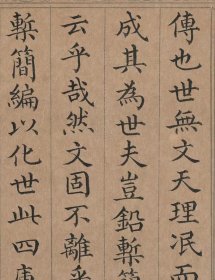 傳也世無文天理泯而
成其為世夫豈鉛槧簡
云乎哉然文固不離乎
槧簡編以化世此四庫